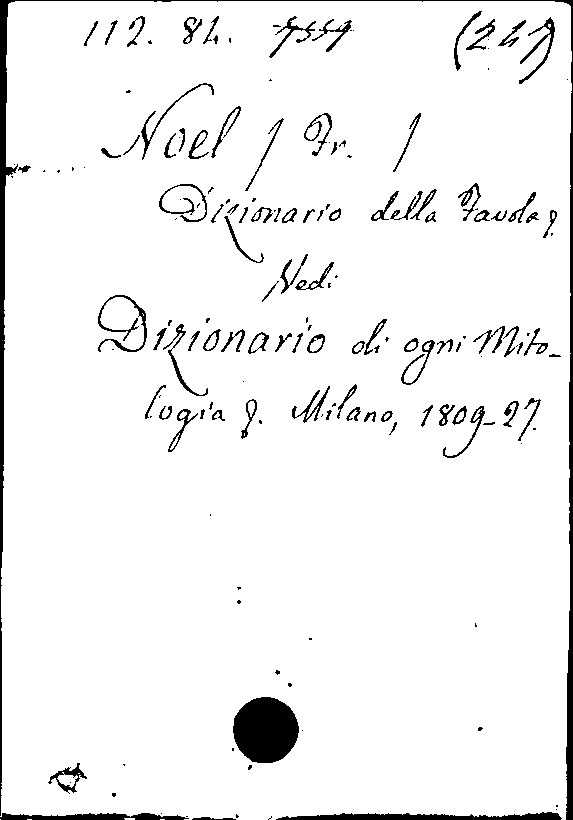 112. 84. 7559 (247)
Noel / Fr. /
Dizionario della Favola
Vedi
Dizionario di ogni Mito-
logia &. Milano, 1809-27.